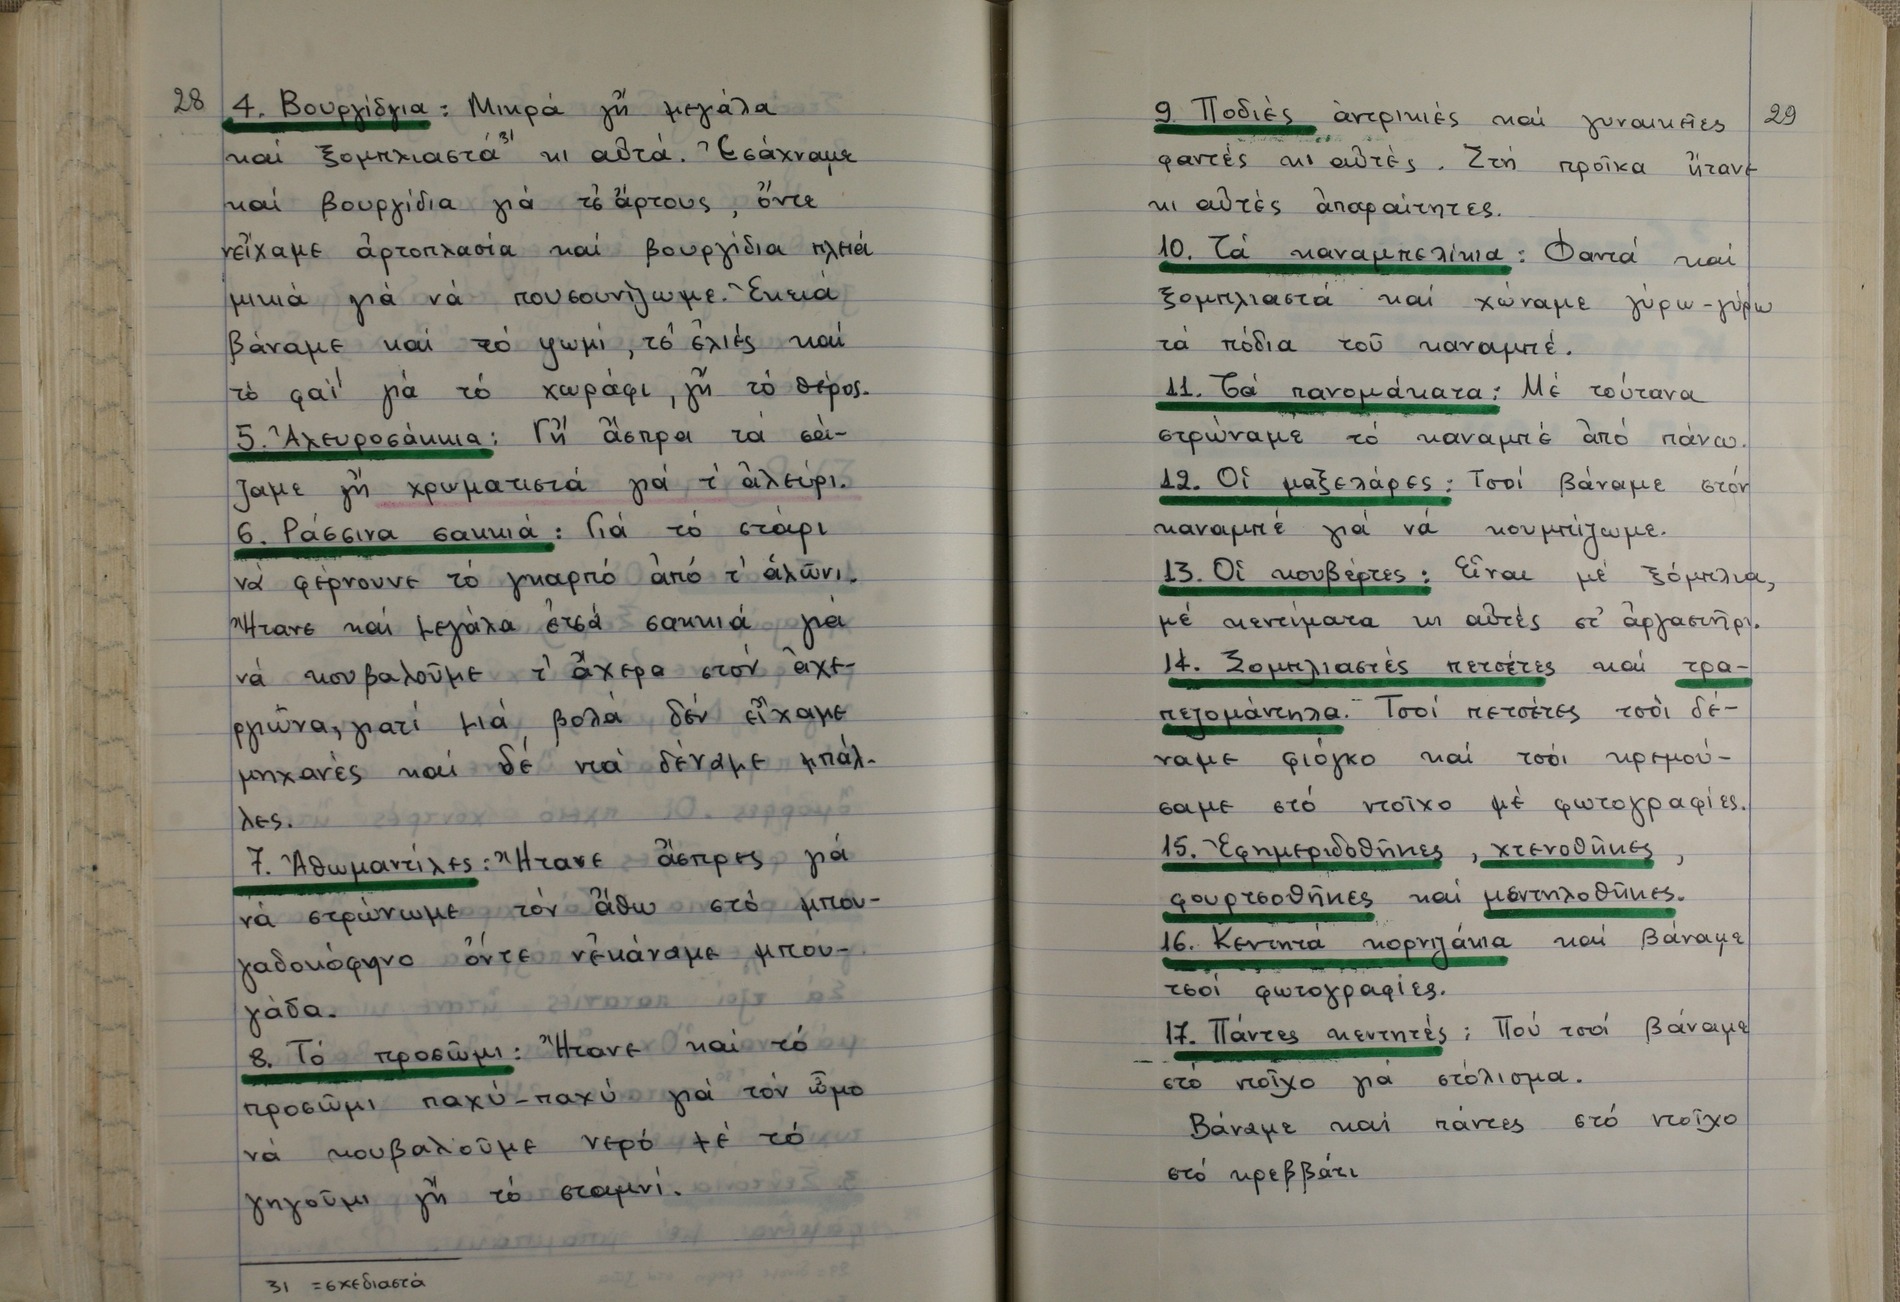 28
4. Βουργίδγια: Μικρά γἤ μεγάλα
καί ξομπλιαστά³¹ κι αὐτά. Ἐσάχναμε
καί βουργίδια γιά τσ' ἄρτους, ὄντε
νεἴχαμε ἀρτοπλασία καί βουργίδια πλειά
μικιά γιά νά πουσουνίζωμε. Ἐκειά
βάναμε καί τό ψωμί, τσ' ἐλιές καί
τό φαΐ γιά τό χωράφι, γἤ τό θέρος.
5. Ἀλευροσάκκια: Γἤ ἄσπρα τά σάι-
ζαμε γἤ χρωματιστά γιά τ' ἀλεύρι.
6. Ράσσινα σακκιά: Γιά τό στάρι
νά φέρνουνε τό γκαρπό ἀπό τ' ἁλῶνι.
Ἤτανε καί μεγάλα ἐτσά σακκιά γιά
νά κουβαλοῦμε τ' ἄχερα στόν ἀχε-
ργιῶνα, γιατί μιά βολά δέν εἴχαμε
μηχανές καί δέ ντά δέναμε μπάλ-
λες.
7. Ἀθωμαντίλες: Ἤτανε ἄσπρες γιά
νά στρώνωμε τόν ἄθω στό μπου-
γαδοκόφινο ὄντε νἐκάναμε μπου-
γάδα.
8. Τό προσῶμι: Ἤτανε καί τό
προσῶμι παχύ-παχύ γιά τόν ὦμο
νά κουβαλοῦμε νερό μέ τό
γηγοῦμι γἤ τό σταμνί.
31 = σχεδιαστά
29
9. Ποδιές ἀντρικιές καί γυναικεῖες
φαντές κι αὐτές. Στή προῖκα ἤτανε
κι αὐτές ἀπαραίτητες.
10. Τά καναμπελίκια: Φαντά καί
ξομπλιαστά καί χώναμε γύρω-γύρω
τά πόδια τοῦ καναμπέ.
11. Τά πανομάκατα: Μέ τούτανα
στρώναμε τό καναμπέ ἀπό πάνω.
12. Οἱ μαξελάρες: Τσοί βάναμε στόν
καναμπέ γιά νά κουμπίζωμε.
13. Οἱ κουβέρτες: Εἶναι μέ ξόμπλια,
μέ κεντίματα κι αὐτές στ' ἀργαστῆρι.
14. Ξομπλιαστές πετσέτες καί τρα-
πεζομάντηλα. Τσοί πετσέτες τσοί δέ-
ναμε φιόγκο καί τσοι κρεμού-
σαμε στό ντοῖχο μέ φωτογραφίες.
15. Ἐφημεριδοθῆκες, χτενοθῆκες,
φουρτσοθῆκες καί μαντηλοθῆκες.
16. Κεντητά κορνιζάκια καί βάναμε
τσοί φωτογραφίες.
17. Πάντες κεντητές: Πού τσοί βάναμε
στό ντοῖχο γιά στόλισμα.
Βάναμε καί πάντες στό ντοῖχο
στό κρεββάτι